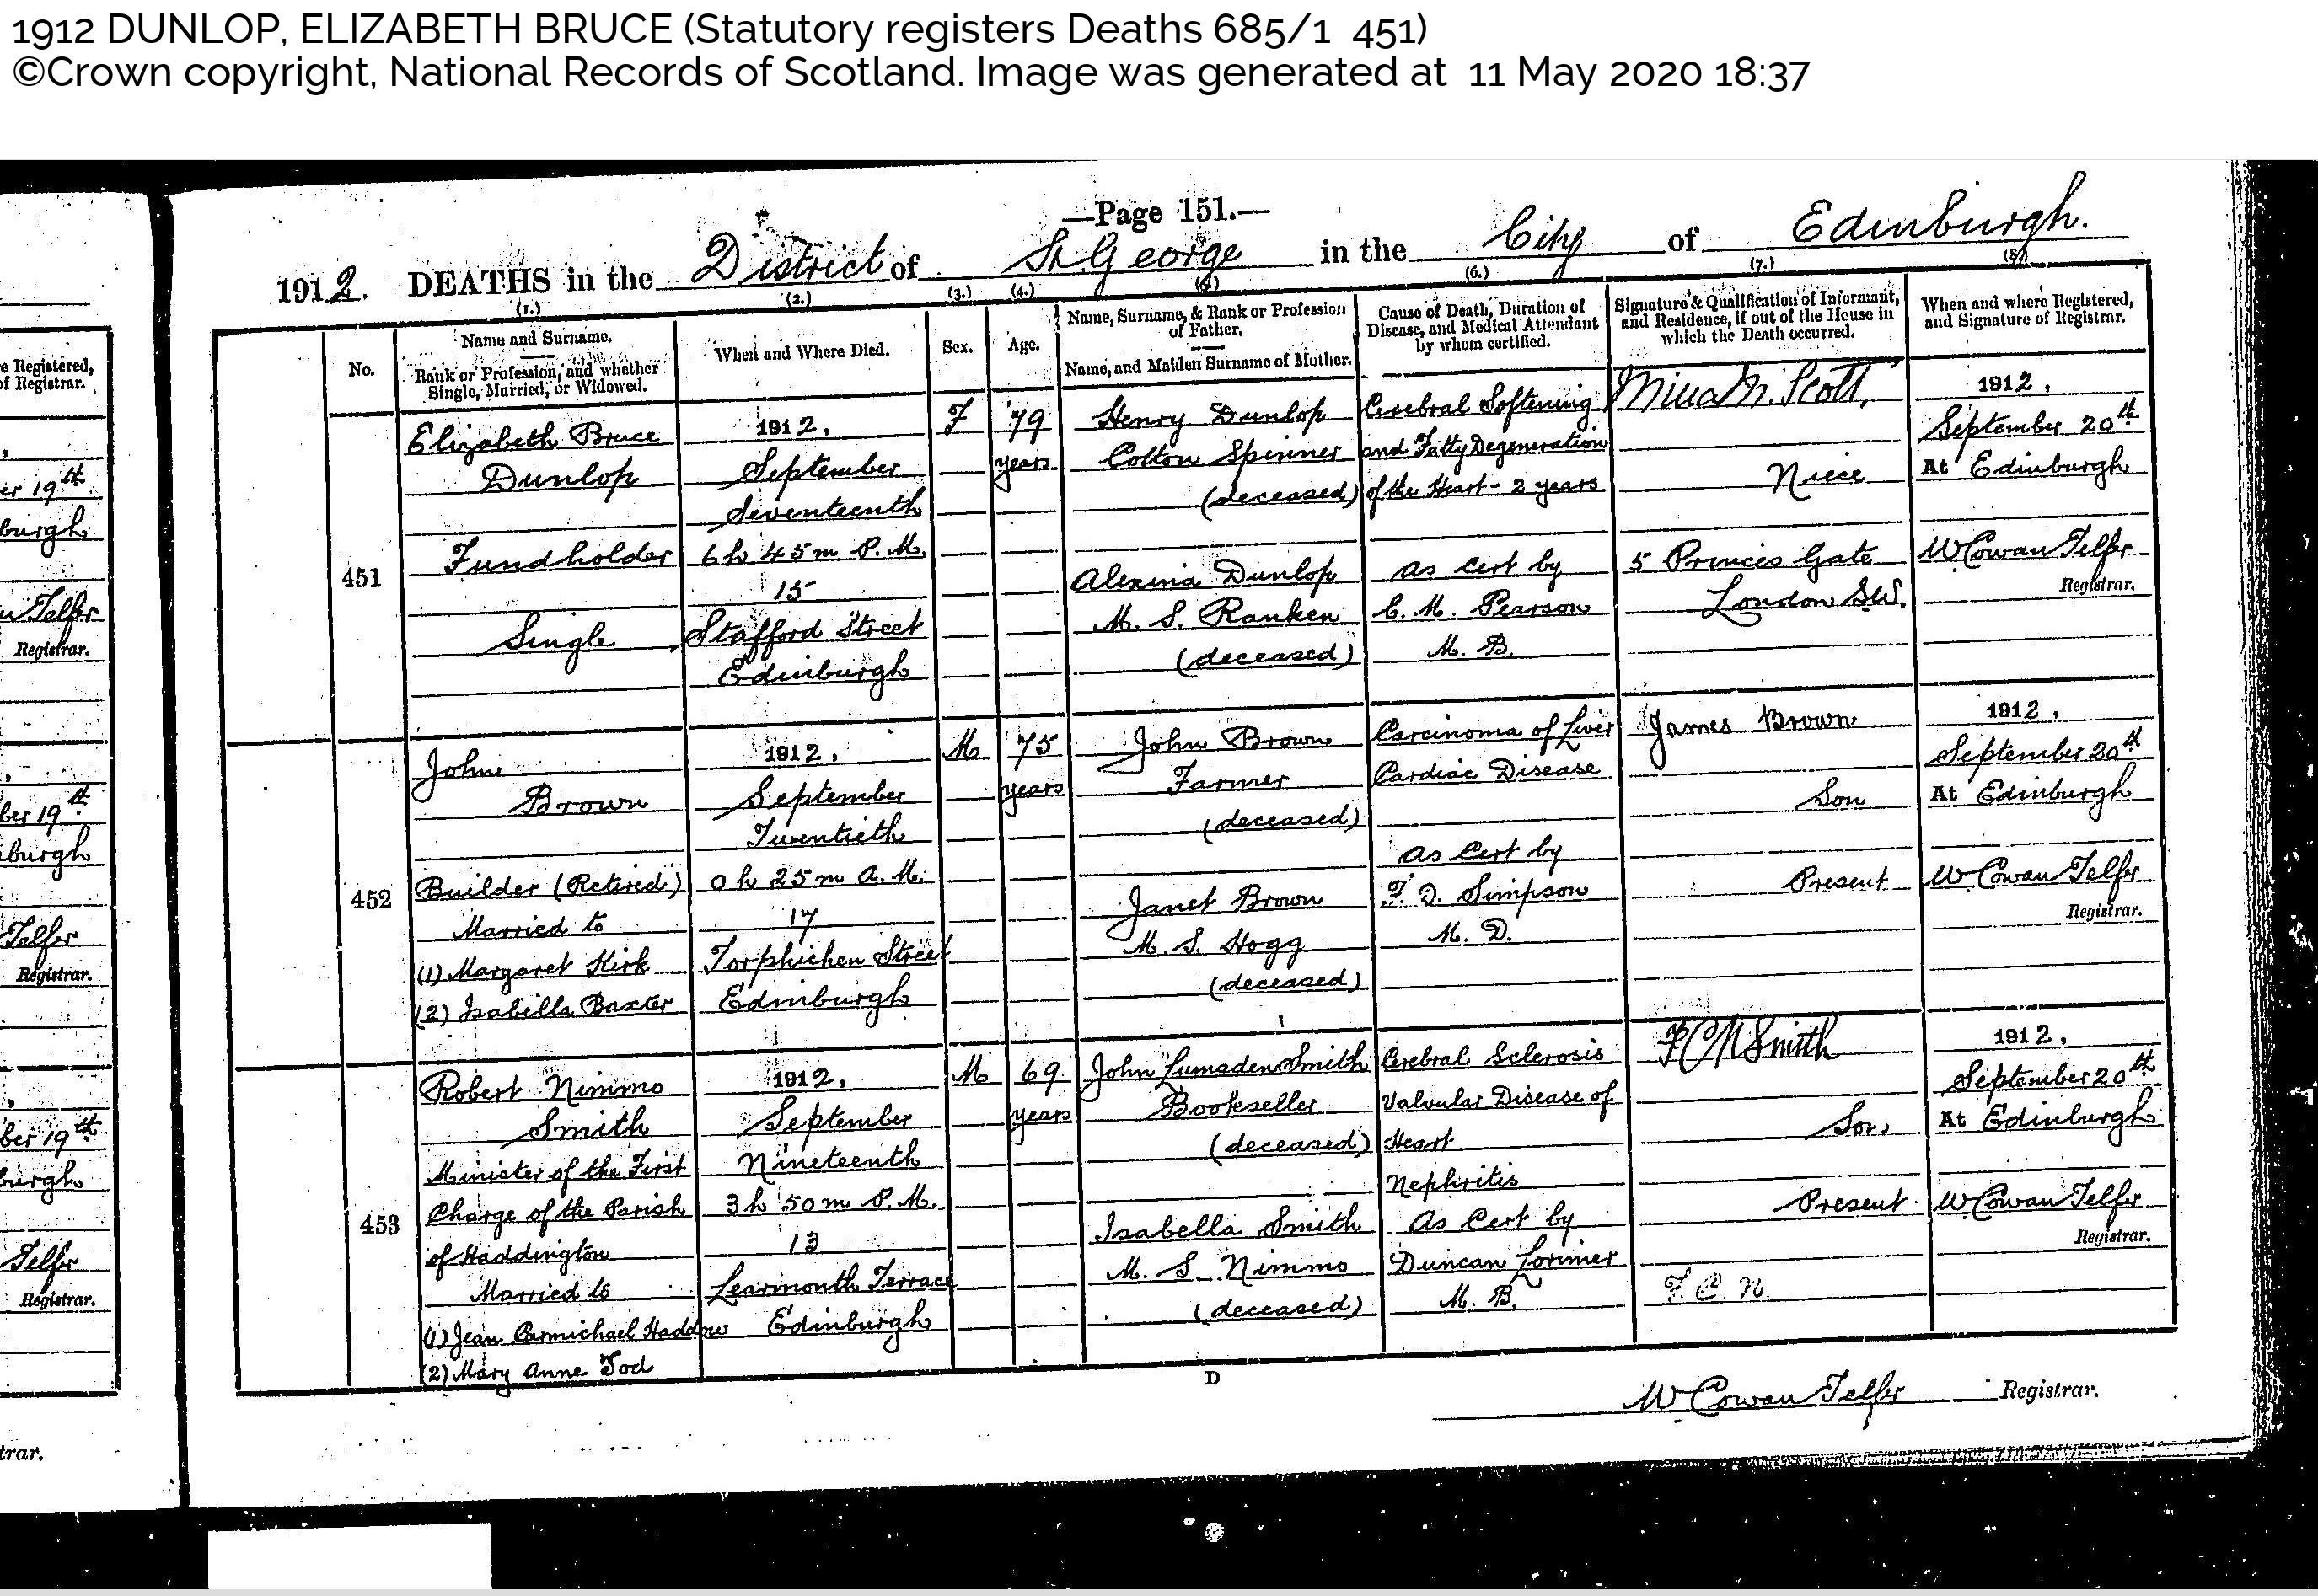 1912 DUNLOP, ELIZABETH BRUCE (Statutory registers Deaths 685/1 451)
©Crown copyright, National Records of Scotland. Image was generated at 11 May 2020 18:37
—Page 151.—
1912. DEATHS in the District of St. George in the City of Edinburgh.
(1.) (2.) (3.) (4.) (5.) (6.) (7.) (8.)
No.
Name and Surname.
Rank or Profession, and whether
Single, Married, or Widowed.
When and Where Died.
Sex.
Age.
Name, Surname, & Rank or Profession
of Father.
Name, and Maiden Surname of Mother.
Cause of Death, Duration of
Disease, and Medical Attendant
by whom certified.
Signature & Qualification of Informant,
and Residence, if out of the House in
which the Death occurred.
When and where Registered,
and Signature of Registrar.
451
Elizabeth Bruce
Dunlop
Fundholder
Single
1912,
September
Seventeenth
6 h 45 m P.M.
15
Stafford Street
Edinburgh
F
79
years
Henry Dunlop
Cotton Spinner
(deceased)
Alexina Dunlop
M. S. Ranken
(deceased)
Cerebral Softening
and Fatty Degeneration
of the Heart - 2 years
as cert by
C. M. Pearson
M. B.
M. Scott,
Niece
5 Princes Gate
London S.W.
1912,
September 20th
At Edinburgh
W Cowan Telfer
Registrar.
452
John
Brown
Builder (Retired)
Married to
(1) Margaret Kirk
(2) Isabella Baxter
1912,
September
Twentieth
0 h 25 m A.M.
17
Torphichen Street
Edinburgh
M
75
years
John Brown
Farmer
(deceased)
Janet Brown
M. S. Hogg
(deceased)
Carcinoma of Liver
Cardiac Disease
as Cert by
F. D. Simpson
M. D.
James Brown
Son
Present
1912,
September 20th
At Edinburgh
W Cowan Telfer
Registrar.
453
Robert Nimmo
Smith
Minister of the First
Charge of the Parish
of Haddington
Married to
(1) Jean Carmichael Haddow
(2) Mary Anne Tod
1912,
September
Nineteenth
3 h 50 m P.M.
13
Learmonth Terrace
Edinburgh
M
69
years
John Lumsden Smith
Bookseller
(deceased)
Isabella Smith
M. S. Nimmo
(deceased)
Cerebral Sclerosis
Valvular Disease of
Heart
Nephritis
As Cert by
Duncan Lorimer
M. B.
F C N Smith
Son,
Present
F. C. N.
1912,
September 20th
At Edinburgh
W Cowan Telfer
Registrar.
D
W Cowan Telfer Registrar.